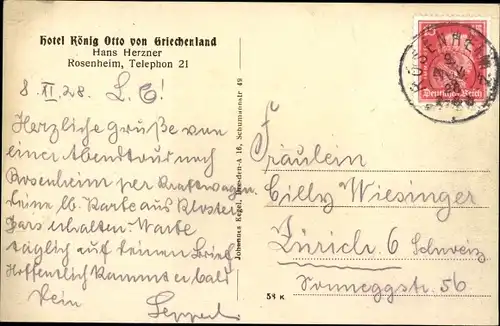 Hotel König Otto von Griechenland
Hans Herzner
Rosenheim, Telephon 21
8. XI. 28. L. C!
Herzliche Grüße von
einer Abendtour nach
Rosenheim per Kraftwagen
Deine lb. Karte aus Kloster
Pars erhalten. Warte
täglich auf deinen Brief.
Hoffentlich kommt er bald
Dein
Sepperl
Johannes Kegel, Dresden-A 16, Schumannstr 49
54 K
ROSENHEIM 2
Deutsches Reich
Fräulein
Cilly Wiesinger
Zürich 6 Schweiz
Sonneggstr. 56